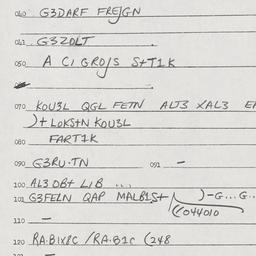 040 G3DARF FREJGN
041 G3ZOLT .
050 A CI GROJS S+T1K
070 KOU3L QGL FETN ALT3 XAL3
)+LOKS+N KOU3L
080 FART1K
090 G3RU·TN 091 –
100 AL3 OB+ LIB ...
101 G3FELN QAP MALB1S+ )–G...G..
044010
110 –
120 RA·B1X8C /RA·B1C (248